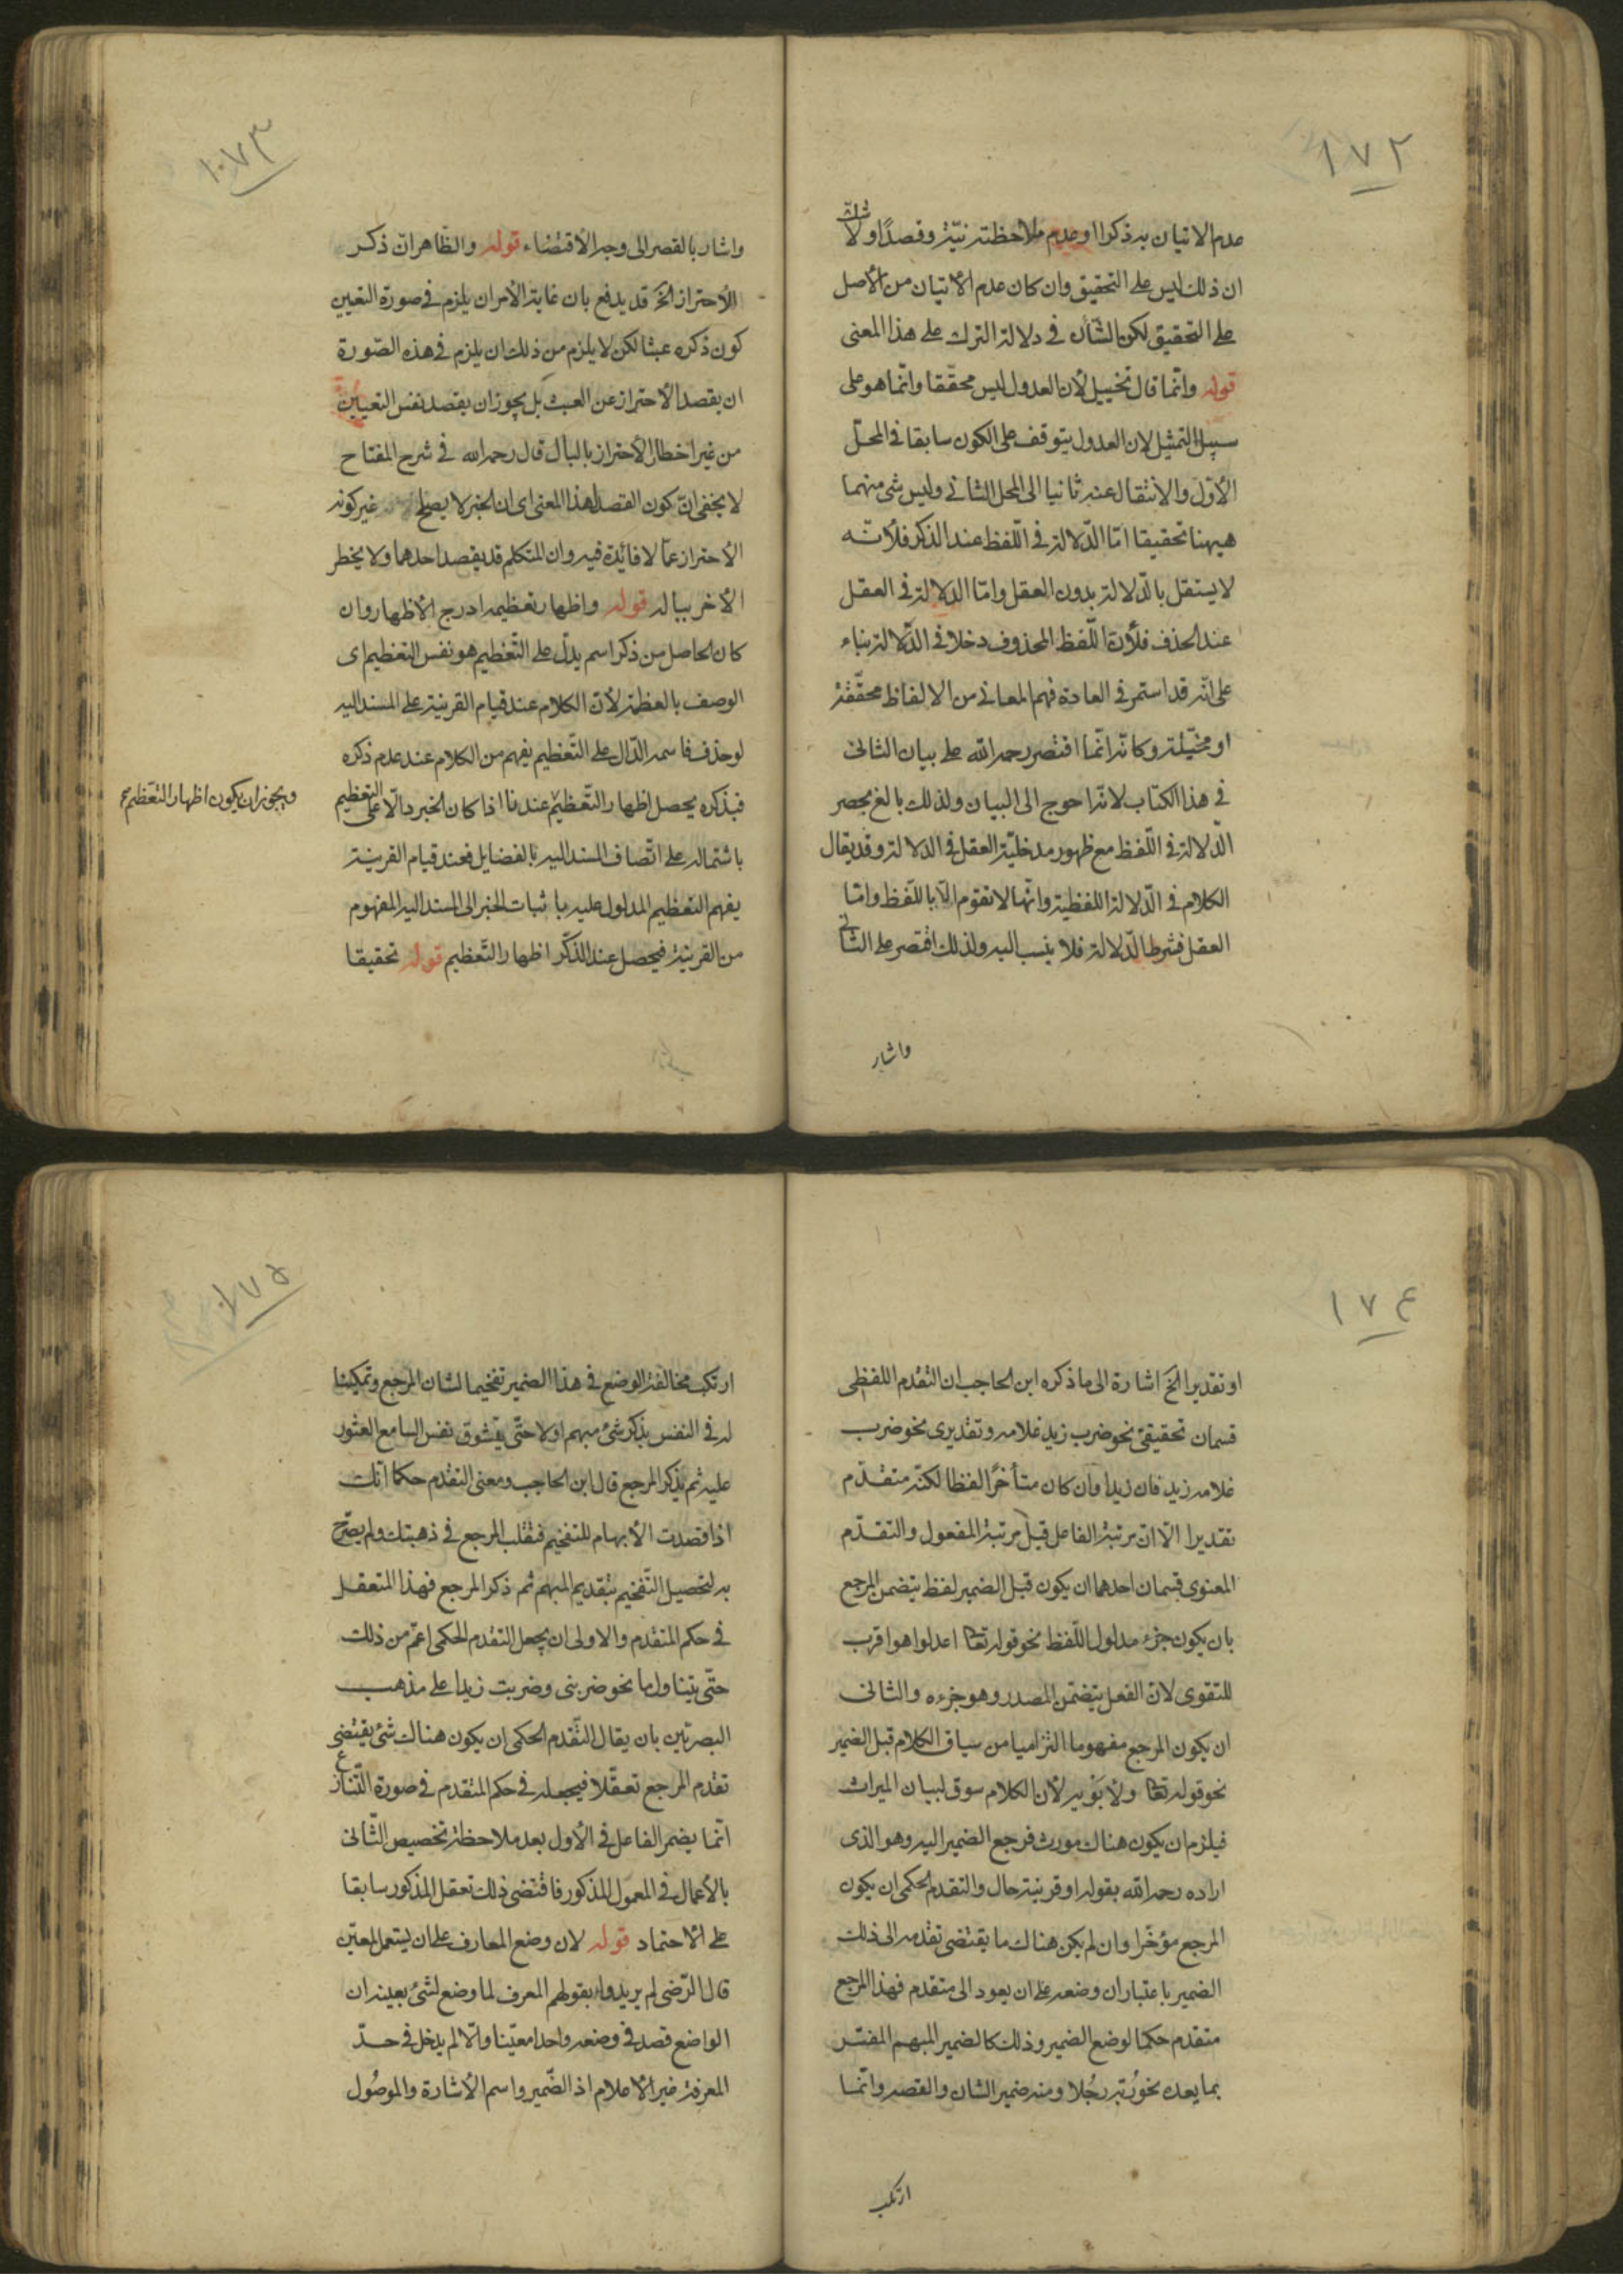 ١٧٢
عدم الاتيان به ذكرا او عدم ملاحظته نيّة وقصدًا ولا شكّ
ان ذلك ليس على التحقيق وان كان عدم الأتيان من الأصل
على التحقيق لكن الشأن في دلالة الترك على هذا المعنى
قوله وانّما قال تخييل لأن العدول ليس محقّقا وانّما هو على
سبيل التمثيل لان العدول يتوقف على الكون سابقا في المحلّ
الأوّل والأنتقال عنه ثانيا الى المحل الثاني وليس شئ منهما
هيهنا تحقيقا امّا الدّلالة في اللّفظ عند الذكر فلأنّه
لا يستقل بالدّلالة بدون العقل وامّا الدلالة في العقل
عند الحذف فلأن اللّفظ المحذوف دخلا في الدّلالة بناء
على انّه قد استمر في العادة فهم المعاني من الالفاظ محقّقة
او مخيّلة وكانّه انّما اقتصر رحمه الله على بيان الثاني
في هذا الكتاب لانّه احوج الى البيان ولذلك بالغ بحصر
الدّلالة في اللّفظ مع ظهور مدخليّة العقل في الدلالة وقد يقال
الكلام في الدّلالة اللفظية وانّها لا تقوم الّا باللّفظ وامّا
العقل فشرط الدّلالة فلا ينسب اليه ولذلك اقتصر على الثاني
واشار
١٧٣
واشار بالقصر الى وجه الأقتضاء قوله والظّاهر انّ ذكر
الأحتراز الخ قد يدفع بان غاية الأمر ان يلزم في صورة التعيين
كون ذكره عبثا لكن لا يلزم من ذلك ان يلزم في هذه الصّورة
ان يقصد الأحتراز عن العبث بل يجوز ان يقصد نفس التعيين
من غير اخطار الأحتراز بالبال قال رحمه الله في شرح المفتاح
لا يخفى انّ كون القصد لهذا المعنى اى ان الخبر لا يصلح غير كونه
الأحتراز عمّا لا فائدة فيه وان المتكلم قد يقصد احدهما ولا يخطر
الأخر بباله قوله واظهار تعظيمه ادرج الأظهار وان
كان الحاصل من ذكر اسم يدلّ على التّعظيم هو نفس التعظيم اى
الوصف بالعظمة لأن الكلام عند قيام القرينة على المسند اليه
لو حذف فاسمه الدّال على التّعظيم يفهم من الكلام عند عدم ذكره
فبذكره يحصل اظهار التّعظيم عندنا اذا كان الخبر دالّا على التعظيم
ويجوز ان يكون اظهار التّعظيم
باشتماله على اتّصاف المسند اليه بالفضايل فعند قيام القرينة
يفهم التعظيم المدلول عليه باثبات الخبر الى المسند اليه المفهوم
من القرينة فيحصل عند الذّكر اظهار التّعظيم قوله تحقيقا
١٧٤
او تقديرا الخ اشارة الى ما ذكره ابن الحاجب ان التقدم اللفظى
قسمان تحقيقى نحو ضرب زيد غلامه وتقديرى نحو ضرب
غلامه زيد فان زيدا وان كان متأخرًا لفظا لكنّه متقدّم
تقديرا الّا انّ مرتبة الفاعل قبل مرتبة المفعول والتقدّم
المعنوى قسمان احدهما ان يكون قبل الضمير لفظ يتضمن المرجع
بان يكون جزء مدلول اللّفظ نحو قوله تعا اعدلوا هو اقرب
للتقوى لان الفعل يتضمّن المصدر وهو جزءه والثانى
ان يكون المرجع مفهوما التزاميا من سياق الكلام قبل الضمير
نحو قوله تعا ولأبويه لأن الكلام سوق لبيان الميراث
فيلزم ان يكون هناك مورث فرجع الضمير اليه وهو الذى
اراده رحمه الله بقوله او قرينة حال والتقدم الحكمى ان يكون
المرجع مؤخّرا وان لم يكن هناك ما يقتضى تقدمه الى ذلك
الضمير باعتبار ان وضعه على ان يعود الى متقدم فهذا المرجع
متقدم حكمًا لوضع الضمير وذلك كالضمير المبهم المفسّر
بما بعده نحو رُبّه رجُلا ومنه ضمير الشان والقصه وانّما
ارتكب
١٧٥
ارتكب مخالفة الوضع في هذا الضمير تفخيما لشان المرجع وتمكينا
له في النفس بذكر شئ مبهم اولا حتّى يتشوق نفس السامع العثور
عليه ثم يذكر المرجع قال ابن الحاجب ومعنى التقدم حكما انّك
اذا قصدت الأبهام للتفخيم فتقلب المرجع في ذهنك ولم يصرّح
به لتحصيل التّفخيم بتقديم المبهم ثم ذكر المرجع فهذا المتعقل
في حكم المتقدم والاولى ان يجعل التقدم الحكمى اعمّ من ذلك
حتّى يتناول ما نحو ضربنى وضربت زيدا على مذهب
البصريّين بان يقال التّقدم الحكمى ان يكون هناك شئ يقتضى
تقدم المرجع تعقّلا فيجعله في حكم المتقدم في صورة التّنازع
انّما يضمر الفاعل في الأول بعد ملاحظة تخصيص الثّانى
بالأعمال في المعمول المذكور فاقتضى ذلك تعقل المذكور سابقا
على الأحتماد قوله لان وضع المعارف على ان يستعمل لمعيّن
قال الرّضى لم يريدوا بقولهم المعرف لما وضع لشئ بعينه ان
الواضع قصد في وضعه واحدا معيّنا والّا لم يدخل في حدّ
المعرفة غير الأعلام اذ الضّمير واسم الأشارة والموصُول